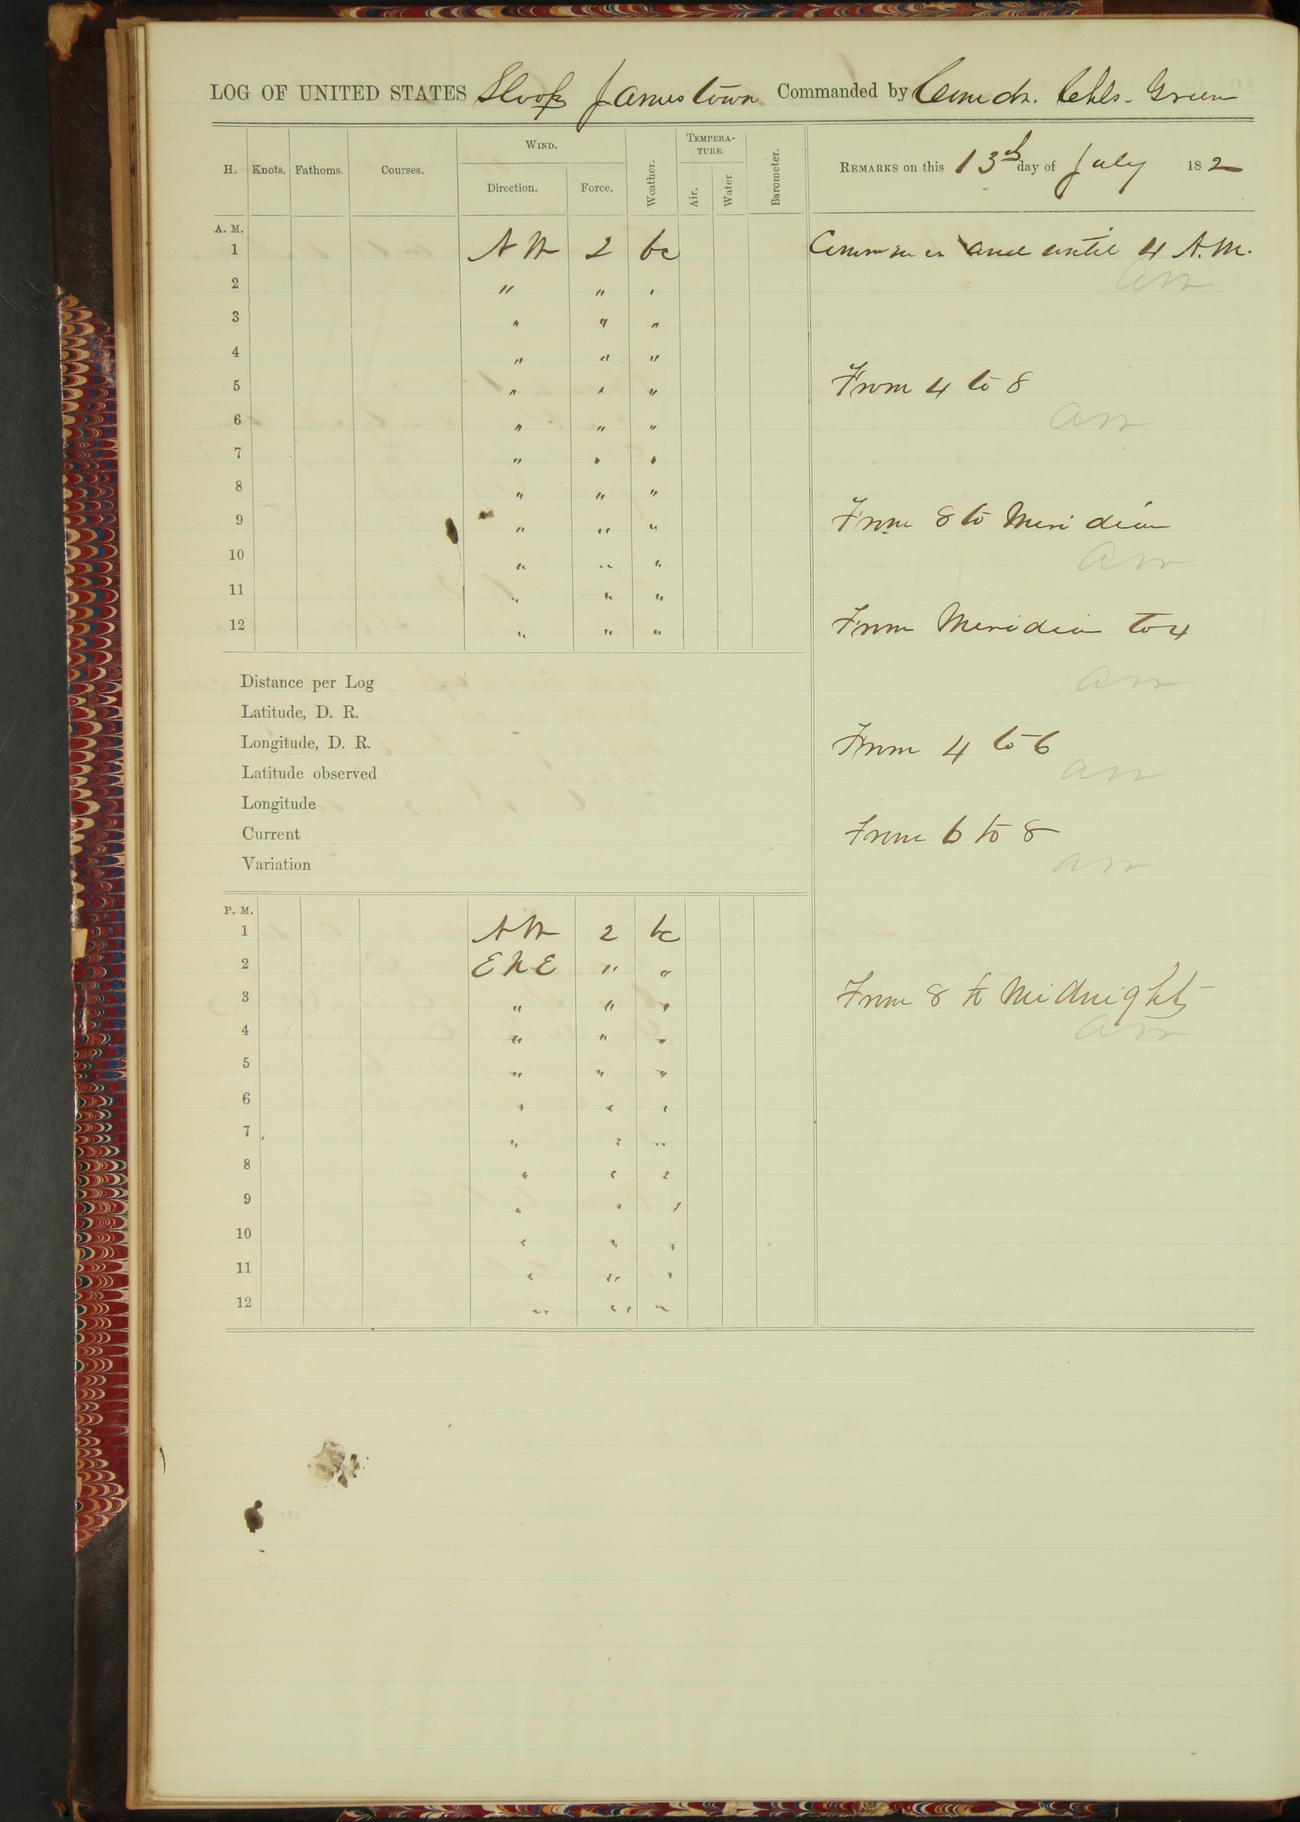 LOG OF UNITED STATES Sloop Jamestown Commanded by Comdr. Chls. Green
H. Knots. Fathoms. Courses. WIND. Direction. Force. Weather. TEMPERA-TURE. Air. Water. Barometer.
REMARKS on this 13th day of July 182
A. M.
1 NW 2 bc
2 " " "
3 " " "
4 " " "
5 " " "
6 " " "
7 " " "
8 " " "
9 " " "
10 " " "
11 " " "
12 " " "
Distance per Log
Latitude, D. R.
Longitude, D. R.
Latitude observed
Longitude
Current
Variation
P. M.
1 NW 2 bc
2 ENE " "
3 " " "
4 " " "
5 " " "
6 " " "
7 " " "
8 " " "
9 " " "
10 " " "
11 " " "
12 " " "
and until 4 A.M.
From 4 to 8
From 8 to Meridian
From Meridian to 4
From 4 to 6
From 6 to 8
From 8 to Midnight